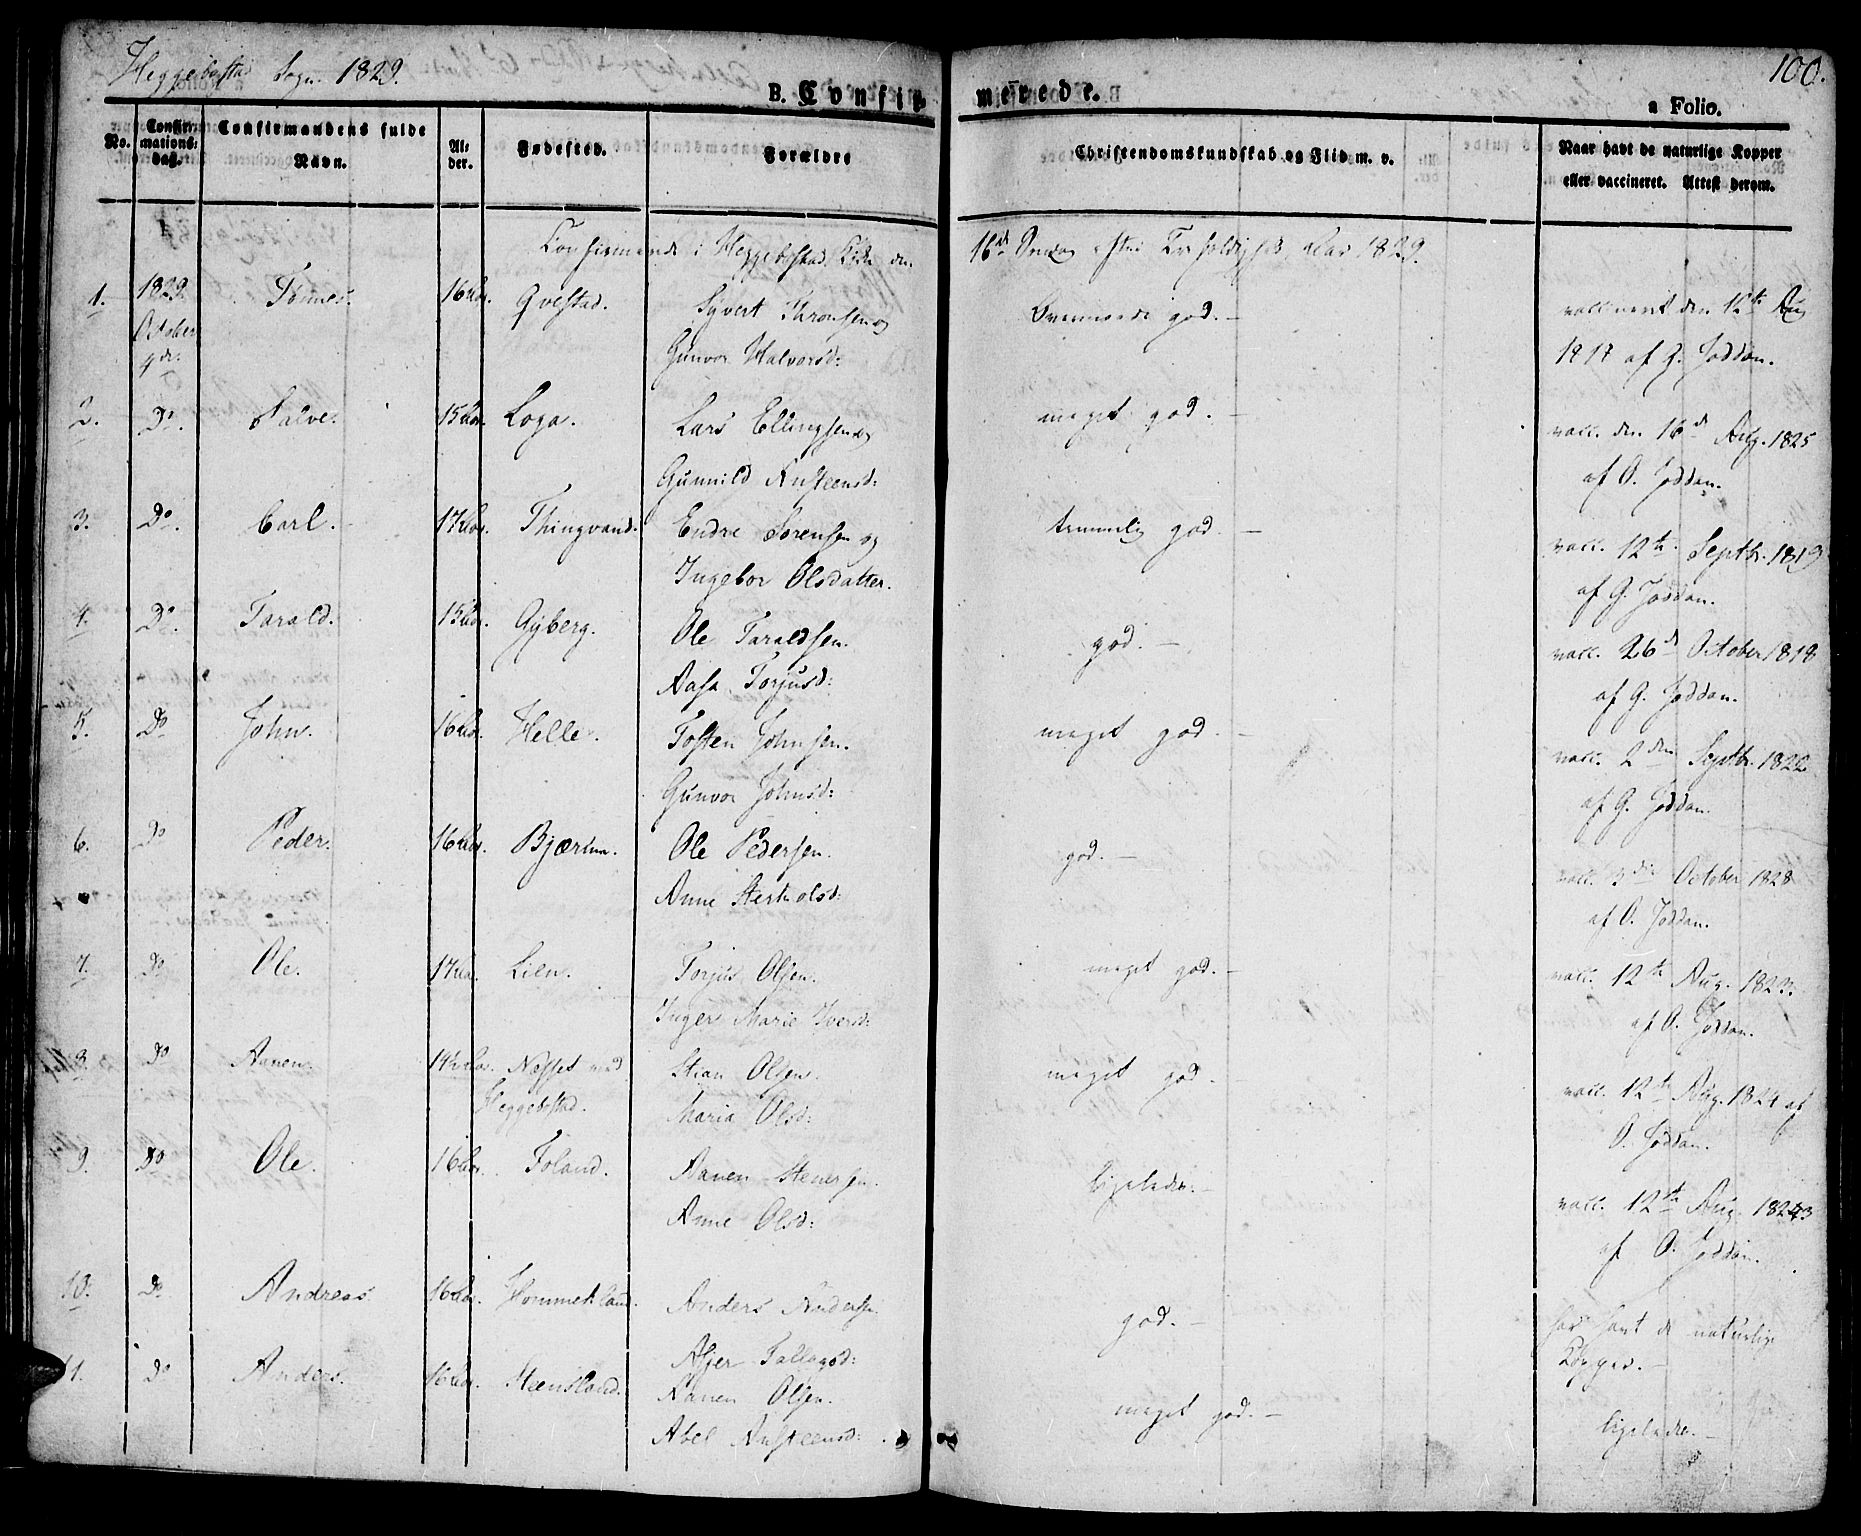 Heggebostad Sogn. 1829.
100.
B. Confir-
merede.
a Folio.
No.
Confir-
mations-
dag.
Confirmandens fulde
Navn.
Al-
der.
Fødested.
Forældre
Christendomskundskab og Flid m. v.
Naar havt de naturlige Kopper
eller vaccineret. Attest derom.
Confirmerede i Heggebostad Kirke den 16de Søndag efter Trefoldighed Aar 1829.
1. 1829. Tønnes. 16 Aar. Qvestad. Syvert Thronsen og god. – vaccineret den 12te Aug
October Gunvor Halvorsd: 1817 af G. Joddan.
4de.
2. Do. Salve. 15 Aar. Loga. Lars Ellingsen og meget god. – vacc. den 16d Aug. 1825
Gunnild Austeensd: af O. Joddan.
3. Do. Carl. – 17 Aar. Thingvand. Endre Sørensen og temmelig god. – vacc. 12te Septbr. 1819
Ingebor Olsdatter. af G. Joddan.
4. Do. Tarald. 15 Aar. Gyberg. Ole Taraldsen. god. – vacc. 26d October 1818
Aasa Torjusd: af G. Joddan.
5. Do John. 16 Aar. Helle. Tosten Johnsen. meget god. – vacc. 2den Septbr. 1822
Gunvor Johnsd: af G. Joddan.
6. Do Peder. 16 Aar. Ole Pedersen. god. – vacc. 3die October 1828
Anne af O. Joddan.
7. Do Ole. 17 Aar. Lien. Torjus Olsen. meget god. – vacc. 12te Aug. 1823.
Inger Marie Iversd: af O. Joddan.
8. Do Aanen. Aar. Nesset ved Stian Olsen. meget god. – vacc. 12te Aug. 1824 af
Heggebostad. Maria Olsd: O. Joddan.
9. Do Ole. 16 Aar. Foland. Aanen Stenersen. ligeledes. – vacc. 12te Aug.
Anne Olsd: af O. Joddan.
10. Do Andreas. 16 Aar. Hommekland. Anders Andersen god. – har havt de naturlige
Asjer Kopper. –
11. Do Anders. 16 Aar. Steensland. Aanen Olsen. meget god. – ligeledes. –
Abel Austeensd: